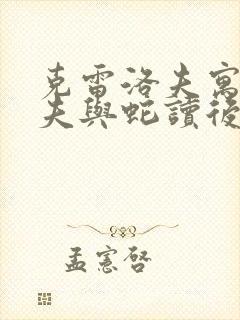 克雷洛夫寓
夫與蛇讀後
孟憲啓